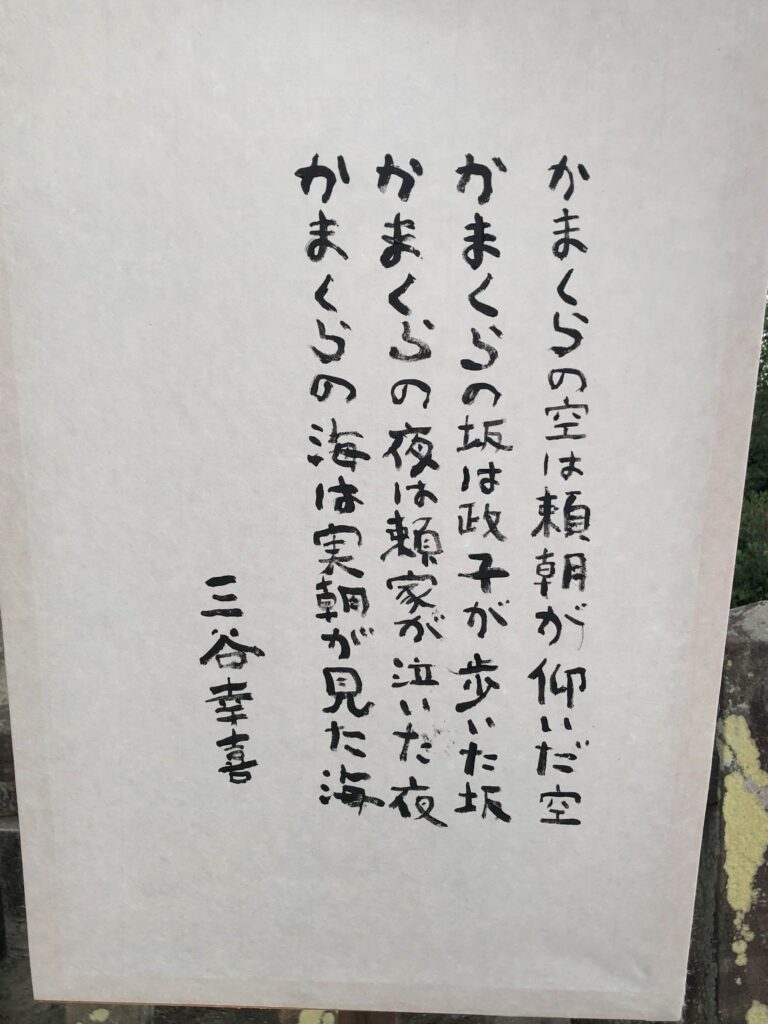 かまくらの空は頼朝が仰いだ空
かまくらの坂は政子が歩いた坂
かまくらの夜は頼家が泣いた夜
かまくらの海は実朝が見た海
三谷幸喜